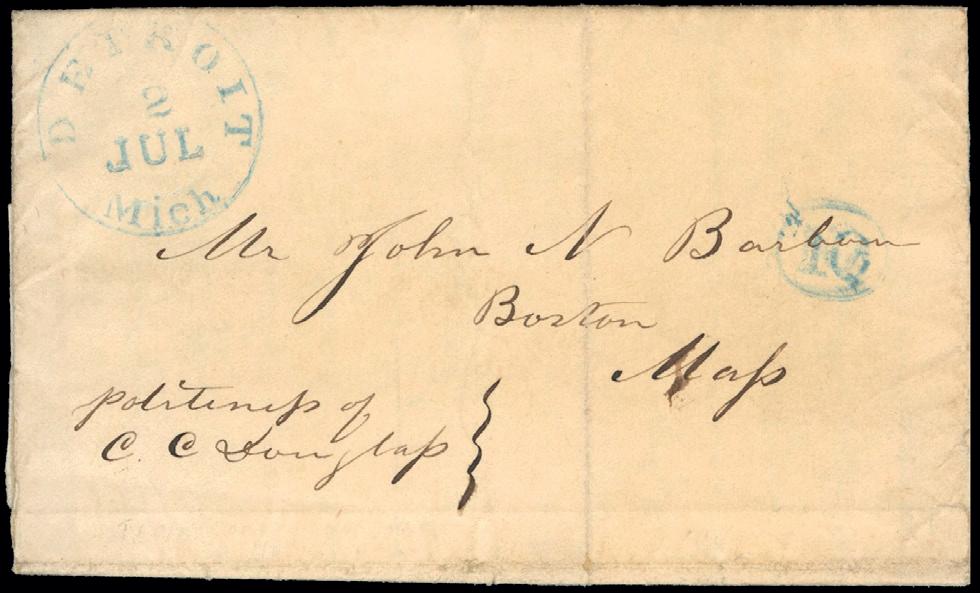 DETROIT
2
JUL
Mich.
10
Mr John N Barbour
Boston
Maſs
politeneſs of
C. C Douglaſs